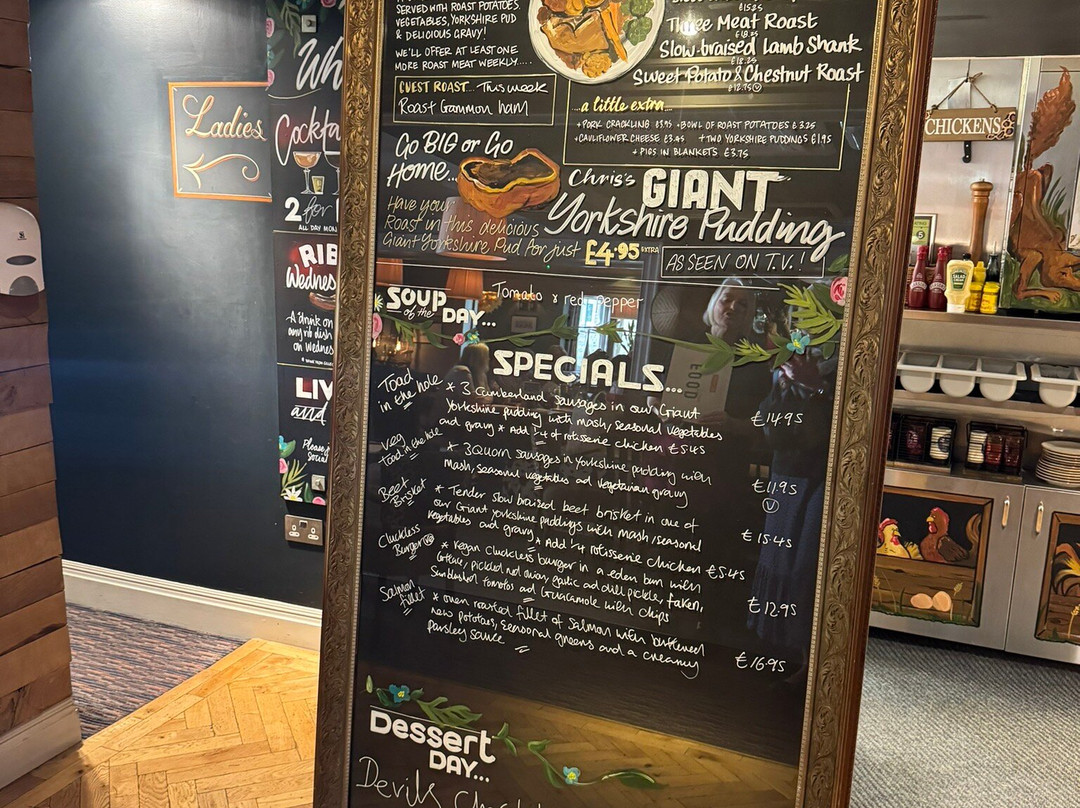 Ladies
Wh
Cockta
2 for
ALL DAY MON
RIB
Wednes
A drink on
any rib dish
on Wednes
LIV
and
Please
Social
SERVED WITH ROAST POTATOES,
VEGETABLES, YORKSHIRE PUD
& DELICIOUS GRAVY!
WE'LL OFFER AT LEAST ONE
MORE ROAST MEAT WEEKLY.....
GUEST ROAST... This week
Roast Gammon ham
£15.25
Three Meat Roast
£18.25
Slow-braised Lamb Shank
£18.25
Sweet Potato & Chestnut Roast
£12.75 V
...a little extra...
+ PORK CRACKLING £1.95 + BOWL OF ROAST POTATOES £3.25
+ CAULIFLOWER CHEESE £3.45 + TWO YORKSHIRE PUDDINGS £1.95
+ PIGS IN BLANKETS £3.75
Go BIG or Go
Home...
Chris's GIANT
Yorkshire Pudding
Have your
Roast in this delicious
Giant Yorkshire Pud for just £4.95 EXTRA
AS SEEN ON T.V.!
SOUP of the DAY...
Tomato & red pepper
SPECIALS...
Toad in the hole
* 3 Cumberland sausages in our Giant
Yorkshire pudding with mash, seasonal vegetables
and gravy * Add 1/4 of rotisserie chicken £5.45
£14.95
Veg Toad in the hole
* 3 Quorn sausages in Yorkshire pudding with
mash, seasonal vegetables and vegetarian gravy
£11.95
V
Beef Brisket
* Tender slow braised beef brisket in one of
our Giant Yorkshire puddings with mash, seasonal
vegetables and gravy * Add 1/4 rotisserie chicken £5.45
£15.45
Cluckless Burger
* Vegan cluckless burger in a eden bun with
pickled red onion, garlic and dill pickle,
Sunblushed tomatos and Guacamole with chips
£12.95
Salmon fillet
* oven roasted fillet of Salmon with buttered
new potatoes, seasonal greens and a creamy
parsley sauce
£16.95
Dessert
DAY...
Devils
CHICKENS